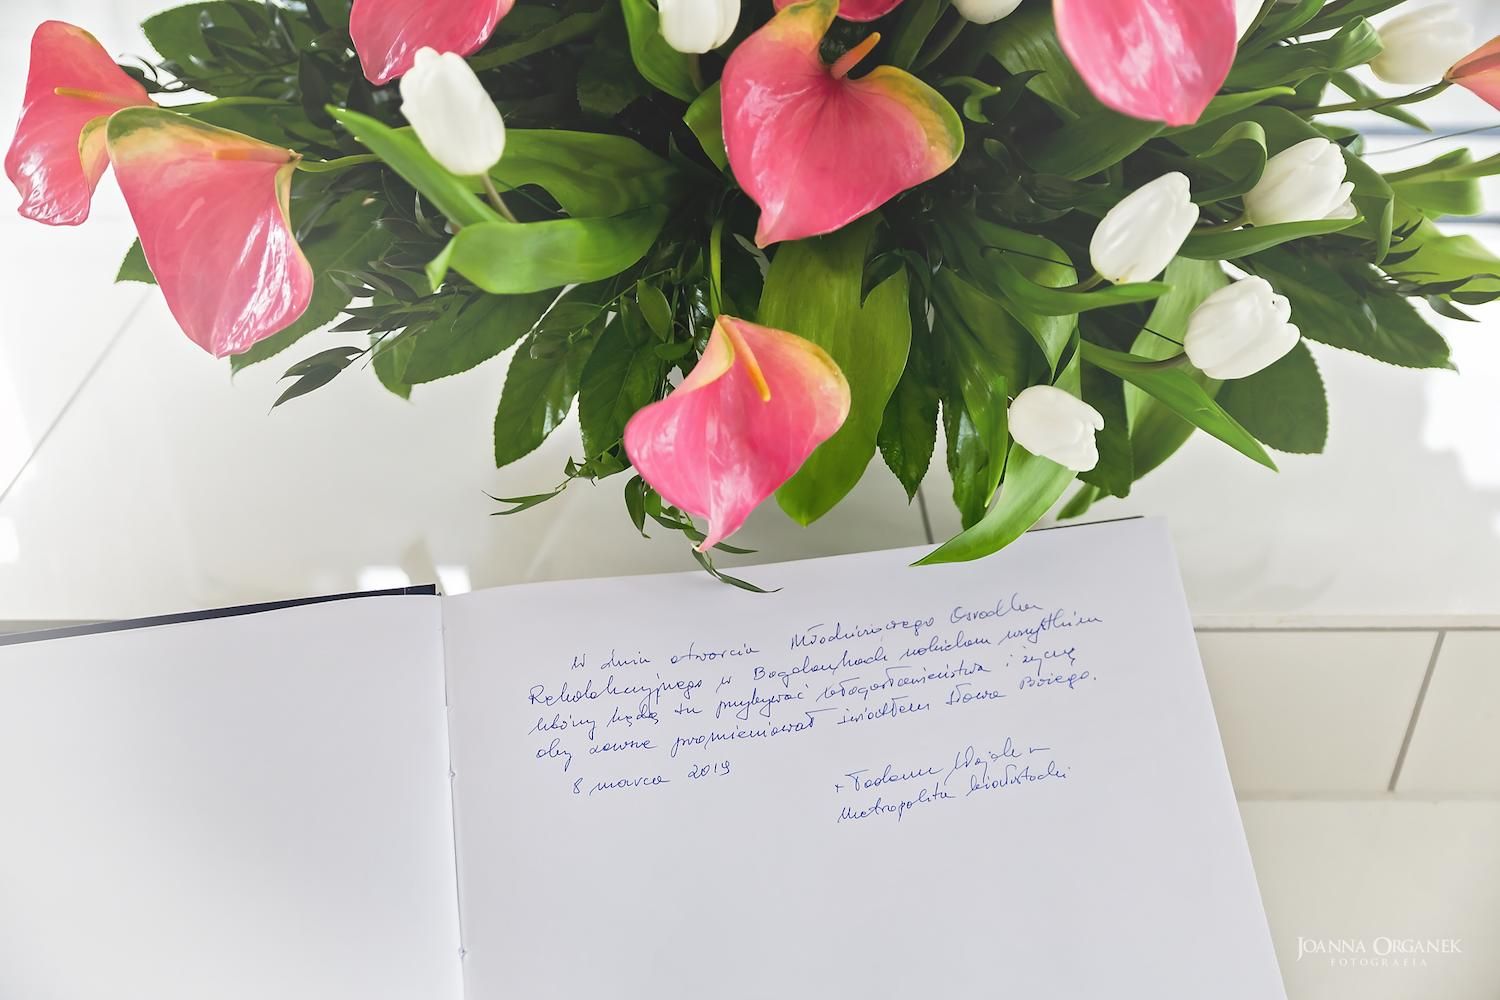 W dniu otwarcia Młodzieżowego Ośrodka
Rekolekcyjnego w Bogdankach wszystkim
którzy będą tu przybywać błogosławieństwa i życzę
aby zawsze promieniował światłem Słowa Bożego.
8 marca 2019
+ Tadeusz Wojda
Metropolita białostocki
JOANNA ORGANEK
FOTOGRAFIA